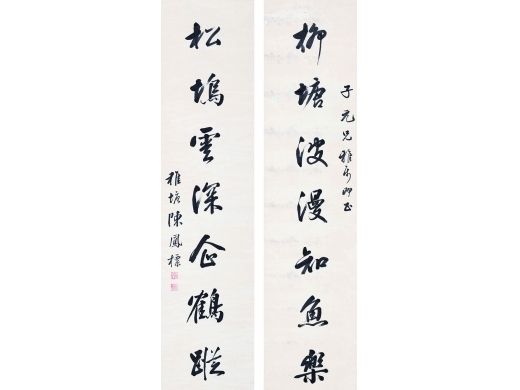 子元兄雅屬即正
柳塘波漫知魚樂
松塢雲深企鶴蹤
雅塘陳鳳標